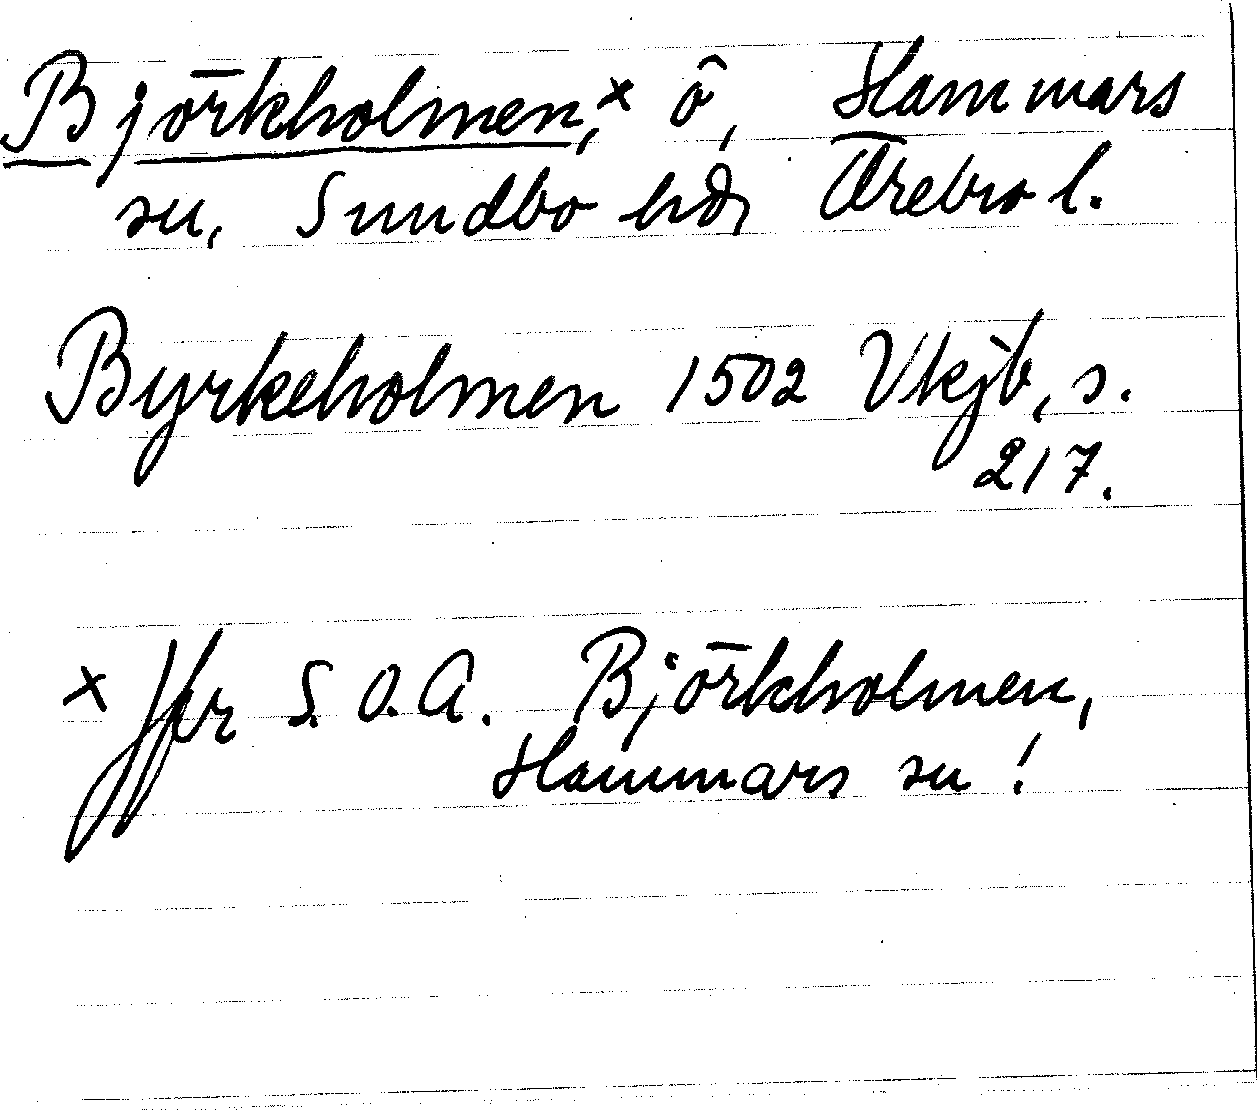 Björkholmen,x ö, Hammars
sn, Sundbo hd, Örebro l.
Byrkeholmen 1502 Vkjb, s.
217.
x Jfr S.O.A. Björkholmen,
Hammars sn!